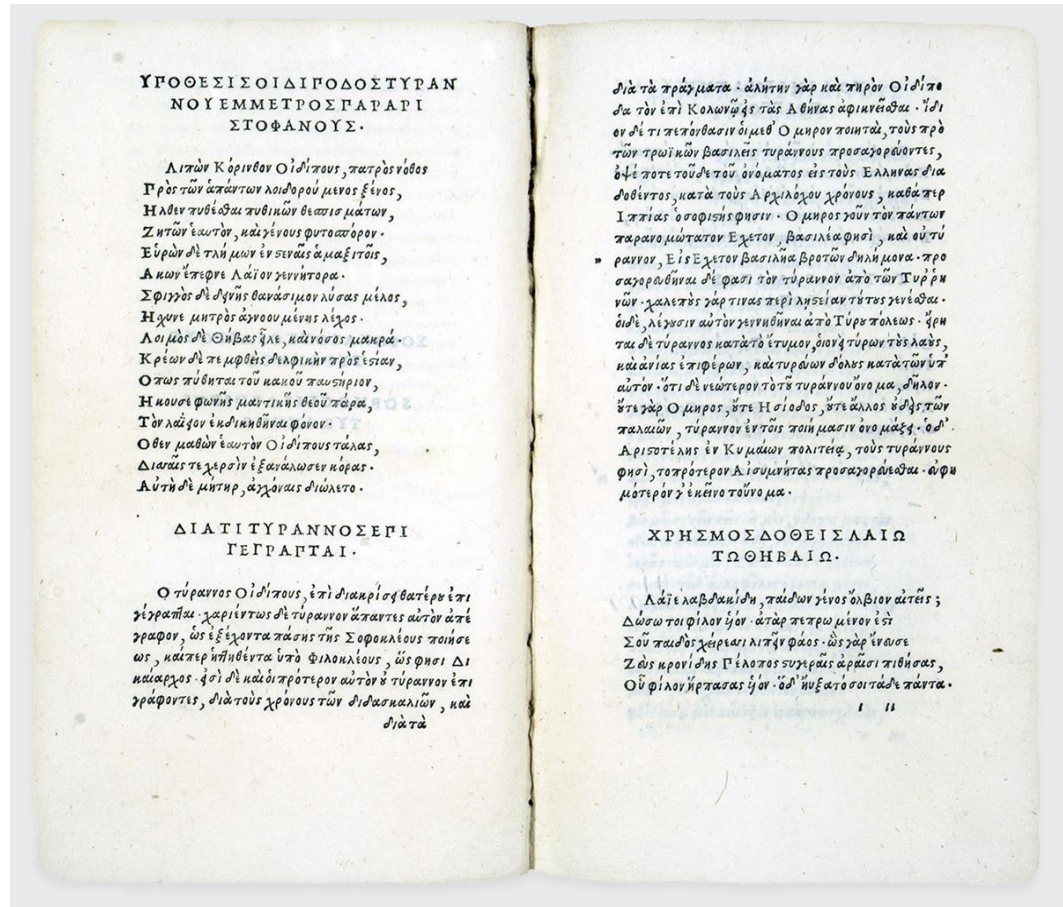 ΥΠΟΘΕΣΙΣΟΙΔΙΠΟΔΟΣΤΥΡΑΝ
ΝΟΥΕΜΜΕΤΡΟΣΠΑΡΑΡΙ
ΣΤΟΦΑΝΟΥΣ·
Λιπὼν Κόρινθον Οἰδίπους, πατρὸς νόθος
Πρὸς τῶν ἁπάντων λοιδορούμενος ξένος,
Ηλθεν πυθέσθαι πυθικῶν θεσπισμάτων,
Ζητῶν ἑαυτὸν, καὶ γένους φυτοσπόρον·
Εὑρὼν δὲ τλήμων ἐν στεναῖς ἁμαξιτοῖς,
Ακων ἔπεφνε Λάϊον γεννήτορα·
Σφιγγὸς δὲ δεινῆς θανάσιμον λύσας μέλος,
Ησχυνε μητρὸς ἀγνοουμένης λέχος·
Λοιμὸς δὲ Θήβας εἷλε, καὶ νόσος μακρά·
Κρέων δὲ πεμφθεὶς δελφικὴν πρὸς ἑστίαν,
Οπως πύθηται τοῦ κακοῦ παυστήριον,
Ηκουσε φωνῆς μαντικῆς θεοῦ πάρα,
Τὸν λαΐειον ἐκδικηθῆναι φόνον·
Οθεν μαθὼν ἑαυτὸν Οἰδίπους τάλας,
Δισσαῖς τε χερσὶν ἐξανάλωσεν κόρας·
Αὐτὴ δὲ μήτηρ, ἀγχόναις διώλετο·
ΔΙΑΤΙΤΥΡΑΝΝΟΣΕΠΙ
ΓΕΓΡΑΠΤΑΙ·
Ο τύραννος Οἰδίπους, ἐπὶ διακρίσει θατέρου ἐπι
γέγραπται· χαριέντως δὲ τύραννον ἅπαντες αὐτὸν ἀπέ
γραφον, ὡς ἐξέχοντα πάσης τῆς Σοφοκλέους ποιήσε
ως, καίπερ ἡττηθέντα ὑπὸ Φιλοκλέους, ὥς φησι Δι
καίαρχος· εἰσὶ δὲ καὶ οἱ πρότερον αὐτὸν οὐ τύραννον ἐπι
γράφοντες, διὰ τοὺς χρόνους τῶν διδασκαλιῶν, καὶ
διὰ τὰ
διὰ τὰ πράγματα· ἀλήτην γὰρ καὶ πηρὸν Οἰδίπο
δα τὸν ἐπὶ Κολωνῷ εἰς τὰς Αθήνας ἀφικνεῖσθαι· ἴδι
ον δέ τι πεπόνθασιν οἱ μεθ' Ομηρον ποιηταὶ, τοὺς πρὸ
τῶν τρωϊκῶν βασιλεῖς τυράννους προσαγορεύοντες,
ὀψέ ποτε τοῦδε τοῦ ὀνόματος εἰς τοὺς Ελληνας δια
δοθέντος, κατὰ τοὺς Αρχιλόχου χρόνους, καθάπερ
Ιππίας ὁ σοφιστής φησιν· Ομηρος γοῦν τὸν πάντων
παρανομώτατον Εχετον, βασιλέα φησὶ, καὶ οὐ τύ
ραννον, Εἰς Εχετον βασιλῆα βροτῶν δηλήμονα· προ
σαγορευθῆναι δέ φασι τὸν τύραννον ἀπὸ τῶν Τυρρη
νῶν· χαλεποὺς γάρ τινας περὶ λῃστείαν τούτους γενέσθαι·
οἱ δὲ, λέγουσιν αὐτὸν γεννηθῆναι ἀπὸ Τύρου πόλεως· εἴρη
ται δὲ τύραννος κατὰ τὸ ἔτυμον, οἱονεὶ τύρων τοὺς λαοὺς,
καὶ ἀνίας ἐπιφέρων, καὶ τυρεύων δόλους κατὰ τῶν ὑπ'
αὐτόν· ὅτι δὲ νεώτερον τὸ τοῦ τυράννου ὄνομα, δῆλον·
οὔτε γὰρ Ομηρος, οὔτε Ησίοδος, οὔτε ἄλλος οὐδεὶς τῶν
παλαιῶν, τύραννον ἐν τοῖς ποιήμασιν ὀνομάζει· ὁ δ'
Αριστοτέλης ἐν Κυμαίων πολιτείᾳ, τοὺς τυράννους
φησὶ, τοπρότερον Αἰσυμνήτας προσαγορεύεσθαι· εὐφη
μότερον γ' ἐκεῖνο τοὔνομα·
ΧΡΗΣΜΟΣΔΟΘΕΙΣΛΑΙΩ
ΤΩΘΗΒΑΙΩ·
Λάϊε λαβδακίδη, παίδων γένος ὄλβιον αἰτεῖς;
Δώσω τοι φίλον υἱόν· ἀτὰρ πεπρωμένον ἐστὶ
Σοῦ παιδὸς χείρεσσι λιπεῖν φάος· ὣς γὰρ ἔνευσε
Ζεὺς κρονίδης Πέλοπος στυγεραῖς ἀραῖσι πιθήσας,
Οὗ φίλον ἥρπασας υἱόν· ὁ δ' ηὔξατό σοι τάδε πάντα·
I II